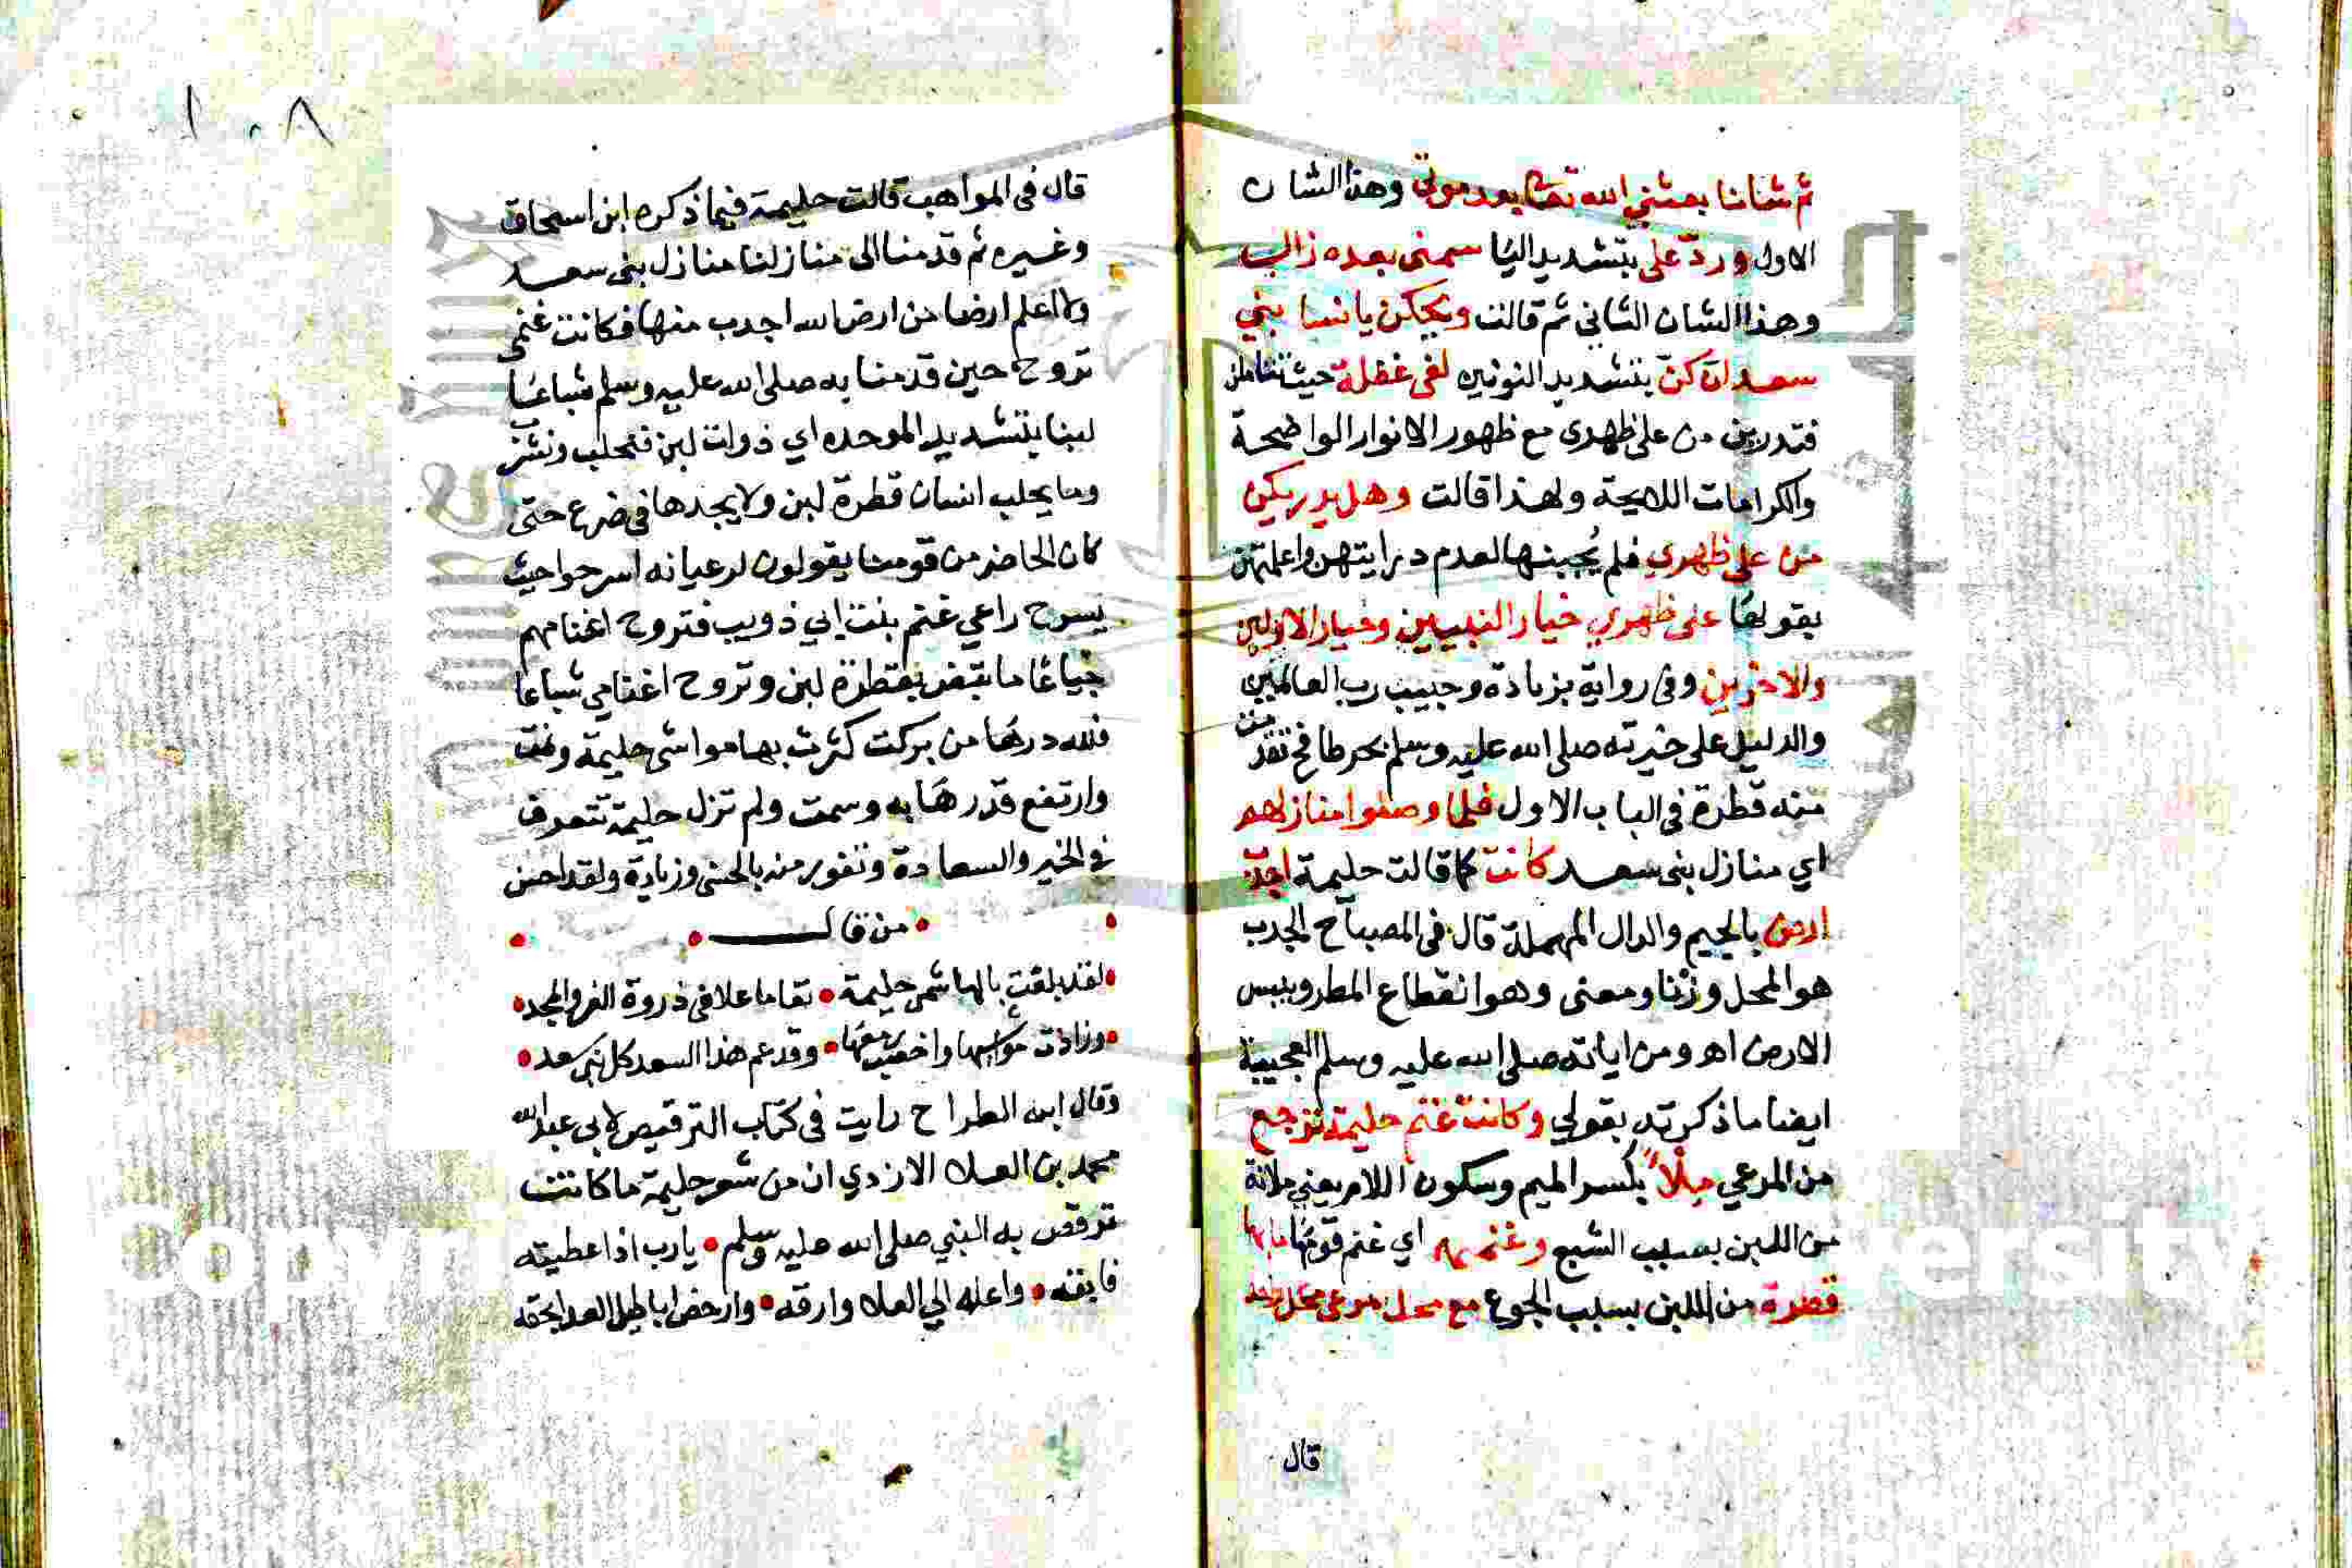 ثم شانا بعثني الله تعا بعد موتي وهذا الشان
الاول ورد على بتشديد اليا سمنى بعده زالي
وهذا الشان الثاني ثم قالت ويحكن يا نسا بني
سعد انكن بتشديد النونين لفى غفلة حيث
فتدرين من على ظهرى مع ظهور الانوار الواضحة
والكرامات اللايحة ولهذا قالت وهل يدريكن
من على ظهري فلم يجبنها لعدم درايتهن واعلمتهن
بقولها على ظهري خيار النبيين وخيار الاولين
والاخرين وفى رواية بزيادة وحبيب رب العالمين
والدليل على خيرته صلى الله عليه وسلم بحر طافح تقدمت
منه قطرة في الباب الاول فلما وصلوا منازلهم
اي منازل بنى سعد كانت كما قالت حليمة اجدب
ارض بالجيم والدال المهملة قال فى المصباح الجدب
هو المحل وزنا ومعنى وهو انقطاع المطر ويبس
الارض اهـ ومن اياته صلى الله عليه وسلم العجيبة
ايضا ما ذكرته بقولي وكانت غنم حليمة ترجع
من المرعي ملأ بكسر الميم وسكون اللام يعني ملانة
من اللبن بسبب الشبع وغنمهم اي غنم قومها ما بها
قطرة من اللبن بسبب الجوع مع محل مرعى
قال
١٠٨
قال فى المواهب قالت حليمة فيما ذكره ابن اسحاق
وغيره ثم قدمنا الى منازلنا منازل بنى سعد
ولا اعلم ارضا من ارض الله اجدب منها فكانت غنمى
تروح حين قدمنا به صلى الله عليه وسلم شباعا
لبنا بتشديد الموحده اي ذوات لبن فنحلب ونشرب
وما يحلب انسان قطرة لبن ولا يجدها فى ضرع حتى
كان الحاضر من قومنا يقولون لرعيانه اسرحوا حيث
يسرح راعي غنم بنت ابي ذويب فتروح اغنامهم
جياعا ما تبض بقطرة لبن وتروح اغنامي شباعا
فلله درها من بركت كثرت بها مواشى حليمة ونمت
وارتفع قدرها به وسمت ولم تزل حليمة تتعرف
في الخير والسعادة وتفوز منه بالحسنى وزيادة ولقد احسن
من قال
لقد بلغت بالهاشمى حليمة • مقاما علا فى ذروة العز والمجد
وزادت مواشيها واخصب ربعها • وقد عم هذا السعد كل بنى سعد
وقال ابن الطراح رايت فى كتاب الترقيص لابي عبد الله
محمد بن العلا الازدي ان من شعر حليمة ما كانت
ترقص به النبي صلى الله عليه وسلم • يا رب اذ اعطيته
فابقه • واعله الي العلا وارقه • وادحض اباطيل العدا بحقه